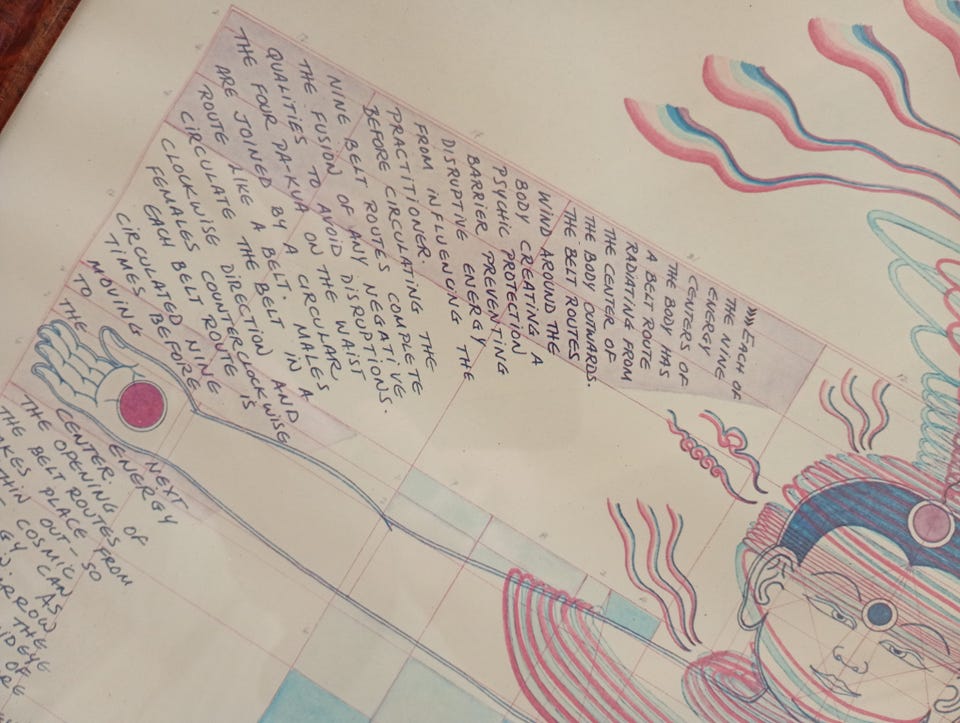 >>> EACH OF
THE NINE
ENERGY
CENTERS OF
THE BODY HAS
A BELT ROUTE
RADIATING FROM
THE CENTER OF
THE BODY OUTWARDS.
THE BELT ROUTES
WIND AROUND THE
BODY CREATING A
PSYCHIC PROTECTION
BARRIER PREVENTING
DISRUPTIVE ENERGY
FROM INFLUENCING THE
PRACTITIONER.
BEFORE CIRCULATING THE
NINE BELT ROUTES COMPLETE
THE FUSION OF ANY NEGATIVE
QUALITIES TO AVOID DISRUPTIONS.
THE FOUR PA-KUA ON THE WAIST
ARE JOINED BY A CIRCULAR.
ROUTE LIKE A BELT. MALES
CIRCULATE THE BELT IN A
CLOCKWISE DIRECTION AND
FEMALES COUNTERCLOCKWISE
EACH BELT ROUTE IS
CIRCULATED NINE
TIMES BEFORE
MOVING
TO
THE
NEXT
ENERGY
CENTER.
THE OPENING OF
THE BELT ROUTES FROM
PLACE OUT-SO
COSMIC AS
CAN